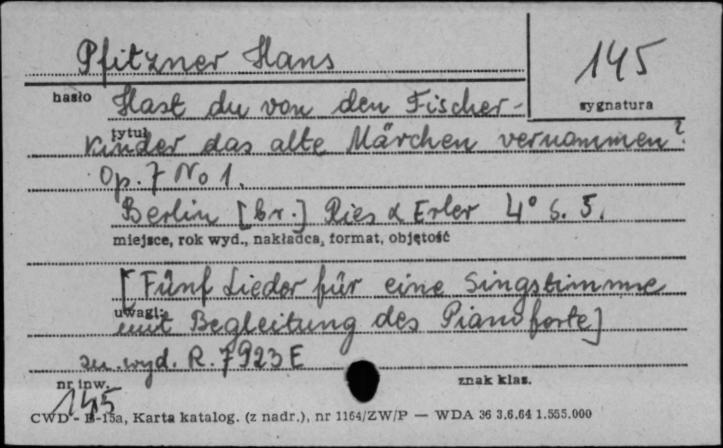 Pfitzner Hans
145
hasło
sygnatura
Hast du von den Fischer-
tytuł
kinder das alte Märchen vernommen?
Op. 7 No 1.
Berlin [br.] Ries & Erler 4° s. 5.
miejsce, rok wyd., nakładca, format, objętość
[Fünf Lieder für eine Singstimme
uwagi:
mit Begleitung des Pianoforte]
zn. wyd. R. 7923 E
nr inw.
znak klas.
145
CWD - B-15a, Karta katalog. (z nadr.), nr 1164/ZW/P — WDA 36 3.6.64 1.555.000